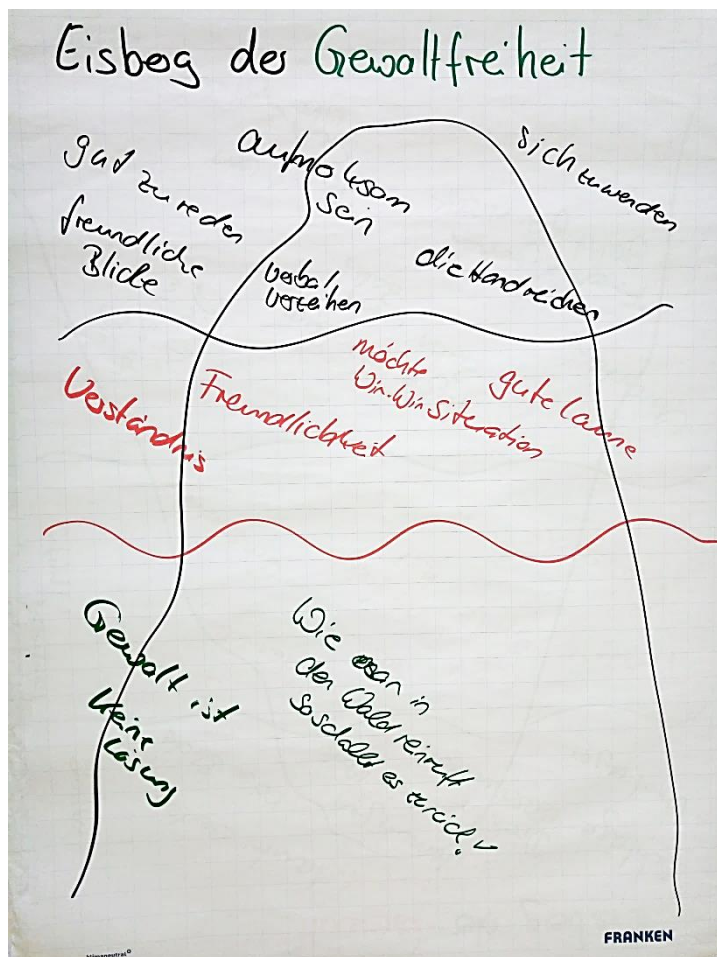 Eisberg der Gewaltfreiheit
gut zu reden
freundliche
Blicke
aufmerksam
sein
sich zuwenden
verbal
verzeihen
die Hand reichen
Verständnis
Freundlichkeit
möchte
Win-Win Situation
gute Laune
Gewalt ist
keine
Lösung
Wie man in
den Wald reinruft
so schallt es zurück!
FRANKEN